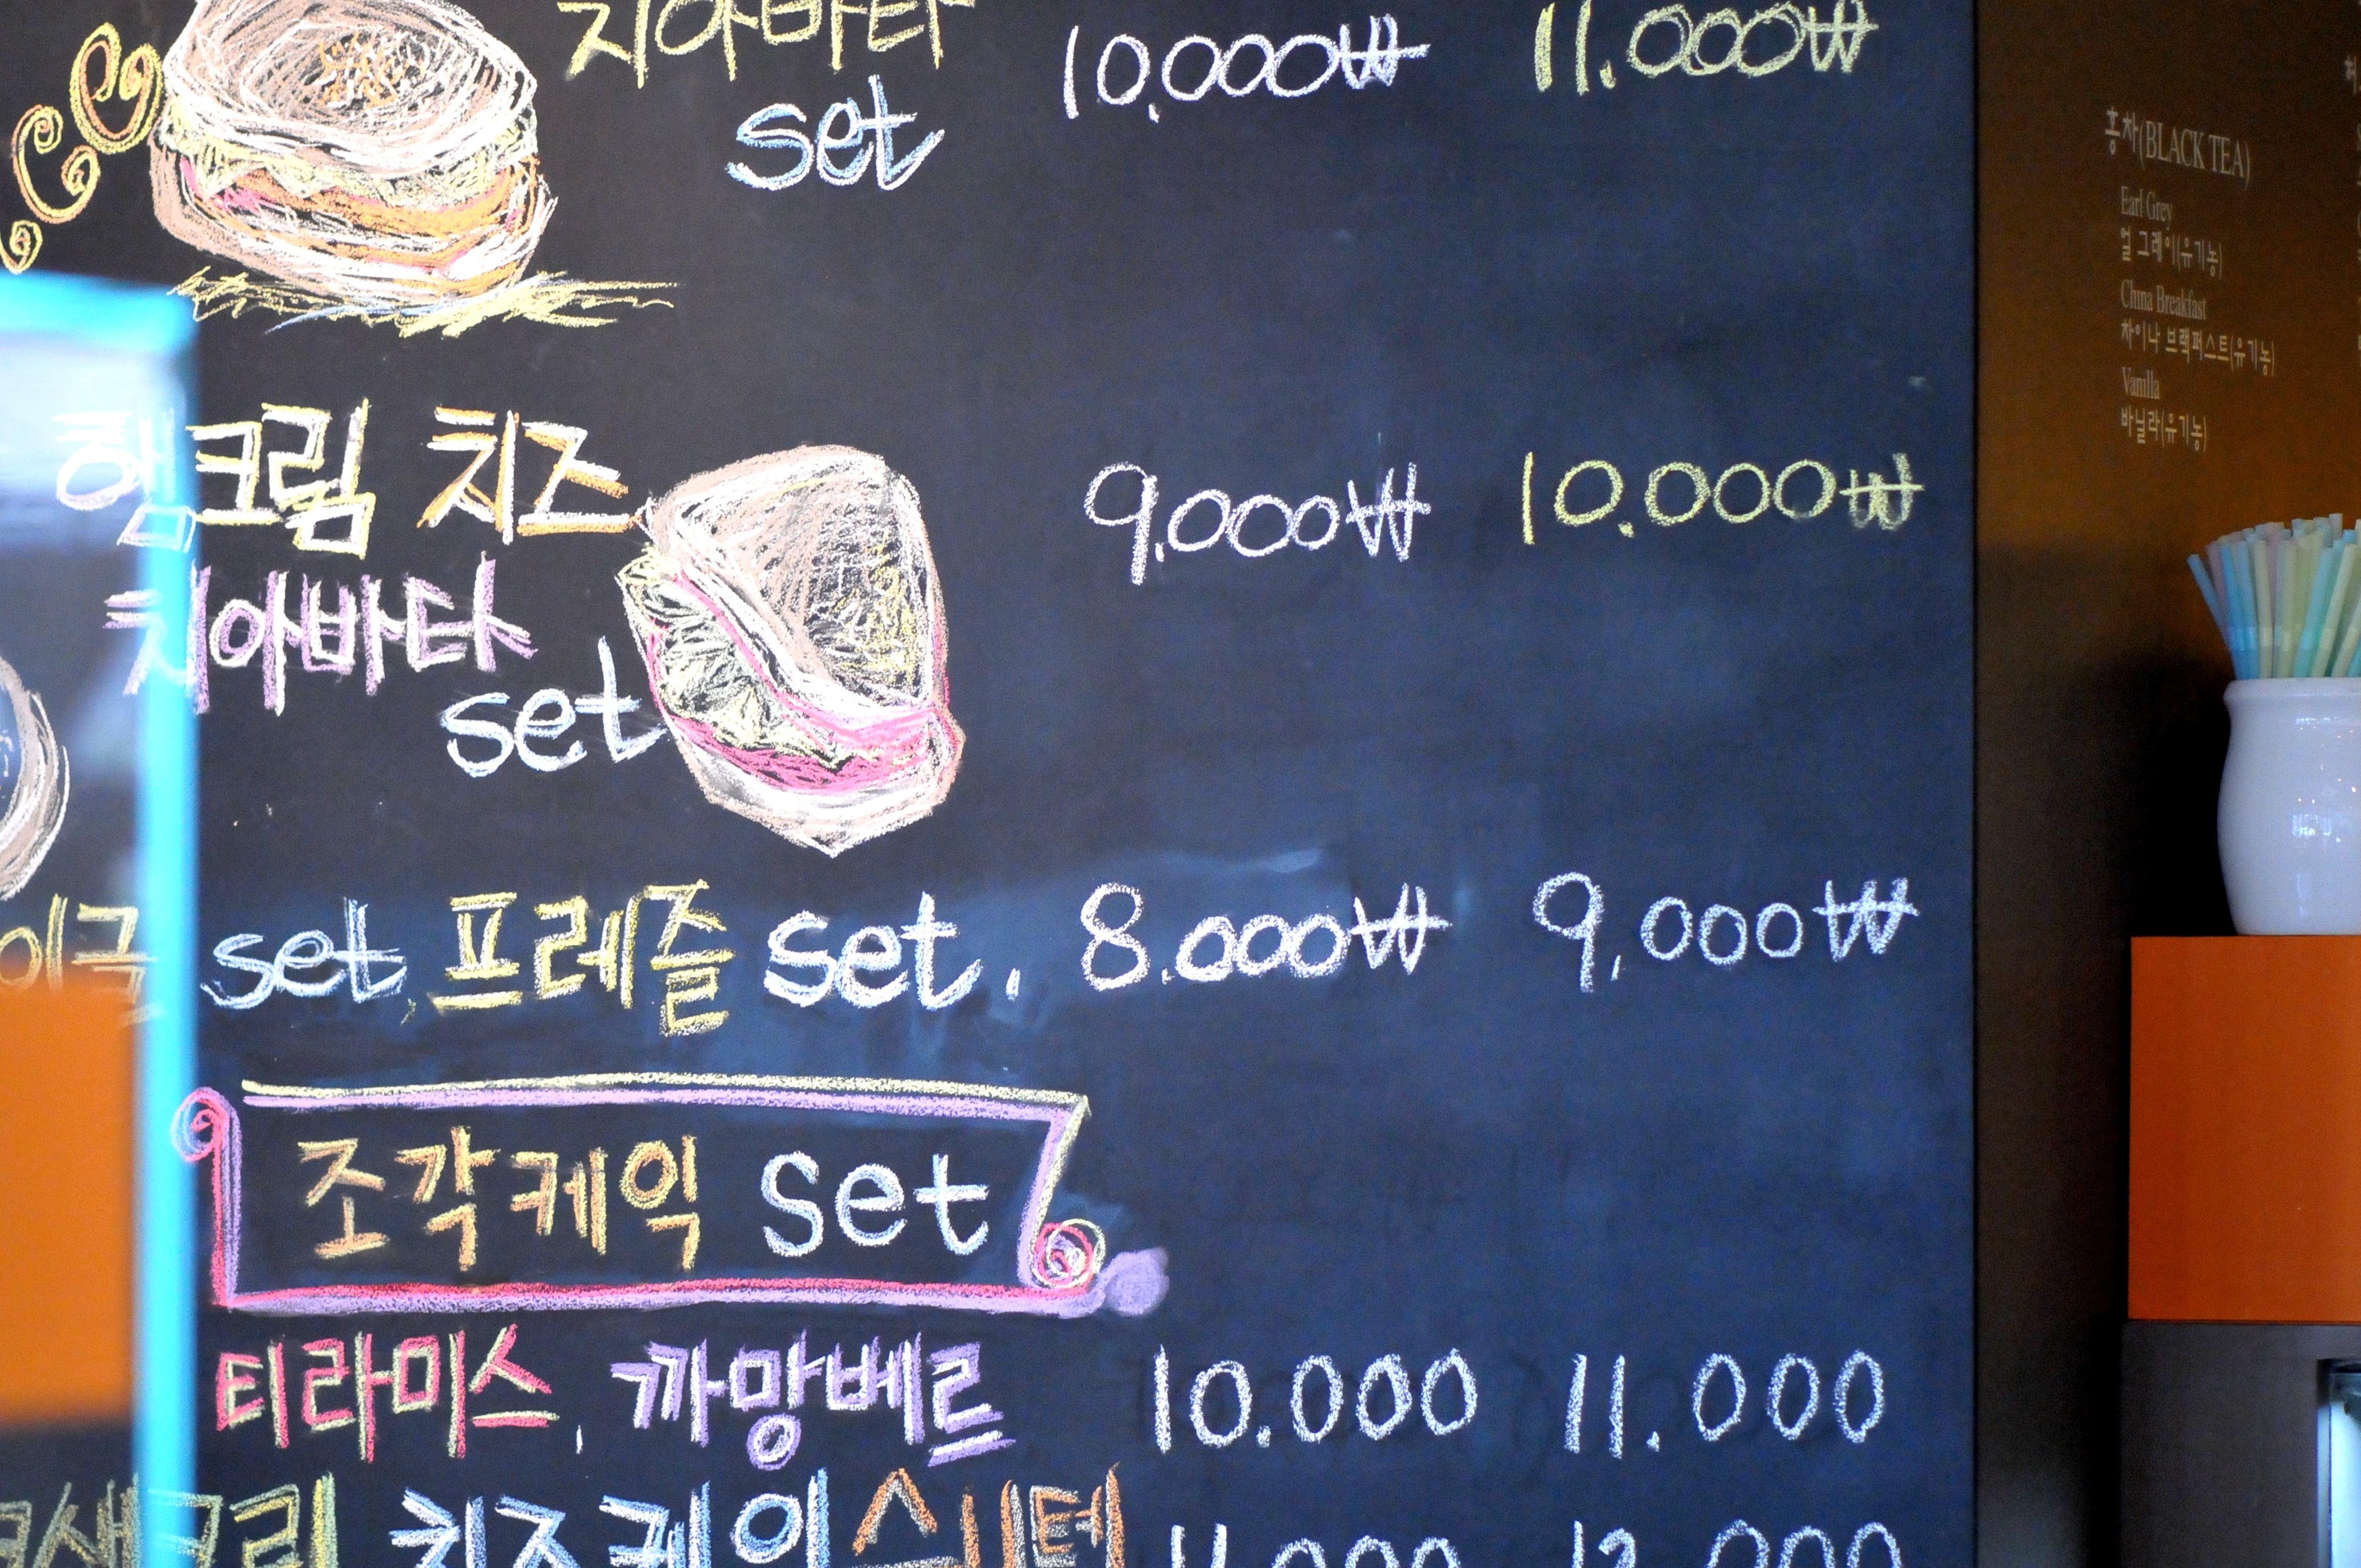 치아바타 10,000₩ 11.000₩
set
햄크림 치즈 9.000₩ 10.000₩
치아바타
set
set, 프레즐 set. 8.000₩ 9,000₩
조각케익 set
티라미스, 까망베르 10.000 11.000
홍차(BLACK TEA)
Earl Grey
얼 그레이(유기농)
China Breakfast
차이나 브랙퍼스트(유기농)
Vanilla
바닐라(유기농)